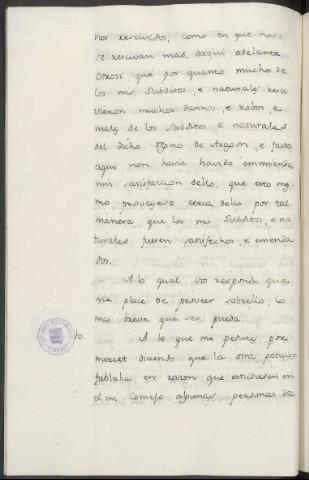 nos rescividos, como en que non
se rescivan mas, daqui adelante.
Otrosi que por quanto muchos de
los mis subditos, e naturales resci
vieron muchos dannos, e robos, e
males de los subditos, e naturales
del dicho Rgno de Aragon, e fasta
aqui non havia havido emmienda
nin satisfaccion dello, que eso mis
mo proveyese cerca dello por tal
manera que los mis Subditos, e na
turales fuesen satisfechos, e emenda
dos.
A lo qual vos respondo que
me place de proveer sobrello lo
mas breve que ser pueda.
10. A lo que me pedistes por
merced diciendo que la otra peticion
fablaba en razon que estudiesen en
el mi Consejo algunas personas de